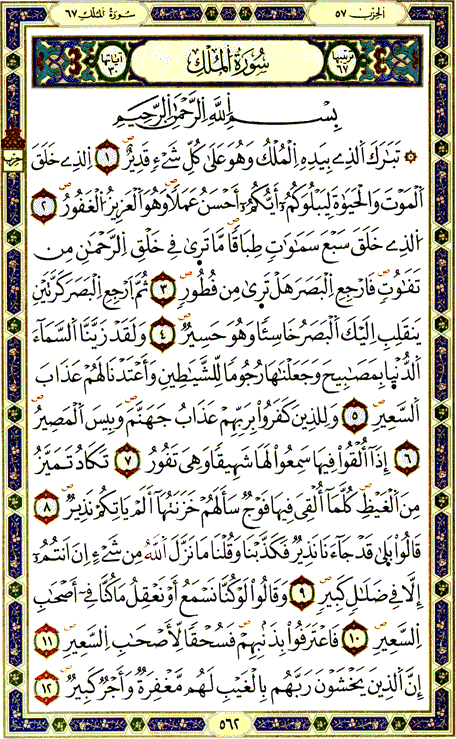 الحزب ٥٧
سورة الملك ٦٧
ترتيبها ٦٧ سُورَةُ الْمُلْكِ آياتها ٣٠
بِسْمِ اللَّهِ الرَّحْمَٰنِ الرَّحِيمِ
۞ تَبَٰرَكَ الَذِے بِيَدِهِ اِلْمُلْكُ وَهُوَ عَلَىٰ كُلِّ شَےْءٖ قَدِيرٌ ١ اِلذِے خَلَقَ
حزب
اَلْمَوْتَ وَالْحَيَوٰةَ لِيَبْلُوَكُمُۥٓ أَيُّكُمُۥٓ أَحْسَنُ عَمَلاٗ وَهُوَ اَلْعَزِيزُ اُلْغَفُورُ ٢
اُلذِے خَلَقَ سَبْعَ سَمَٰوَٰتٖ طِبَاقاٗ مَّا تَرَىٰ فِے خَلْقِ اِلرَّحْمَٰنِ مِن
تَفَٰوُتٖ فَارْجِعِ اِلْبَصَرَ هَلْ تَرَىٰ مِن فُطُورٖ ٣ ثُمَّ اَرْجِعِ اِلْبَصَرَ كَرَّتَيْنِ
يَنقَلِبِ اِلَيْكَ اَلْبَصَرُ خَاسِئاٗ وَهُوَ حَسِيرٌ ٤ وَلَقَدْ زَيَّنَّا اَلسَّمَآءَ
اَلدُّنْيَا بِمَصَٰبِيحَ وَجَعَلْنَٰهَا رُجُوماٗ لِّلشَّيَٰطِينِ وَأَعْتَدْنَا لَهُمْ عَذَابَ
اَلسَّعِيرِ ٥ وَلِلذِينَ كَفَرُواْ بِرَبِّهِمْ عَذَابُ جَهَنَّمَ وَبِيسَ اَلْمَصِيرُ
٦ إِذَآ أُلْقُواْ فِيهَا سَمِعُواْ لَهَا شَهِيقاٗ وَهِيَ تَفُورُ ٧ تَكَادُ تَمَيَّزُ
مِنَ اَلْغَيْظِ كُلَّمَآ أُلْقِيَ فِيهَا فَوْجٞ سَأَلَهُمْ خَزَنَتُهَآ أَلَمْ يَاتِكُمْ نَذِيرٞ ٨
قَالُواْ بَلَىٰ قَدْ جَآءَنَا نَذِيرٞ فَكَذَّبْنَا وَقُلْنَا مَا نَزَّلَ اَللَّهُ مِن شَےْءٍ اِنَ اَنتُمُۥٓ
إِلَّا فِے ضَلَٰلٖ كَبِيرٖ ٩ وَقَالُواْ لَوْ كُنَّا نَسْمَعُ أَوْ نَعْقِلُ مَا كُنَّا فِےٓ أَصْحَٰبِ
اِلسَّعِيرِ ١٠ فَاعْتَرَفُواْ بِذَنۢبِهِمْ فَسُحْقاٗ لِّأَصْحَٰبِ اِلسَّعِيرِ ١١
إِنَّ اَلذِينَ يَخْشَوْنَ رَبَّهُم بِالْغَيْبِ لَهُم مَّغْفِرَةٞ وَأَجْرٞ كَبِيرٞ ١٢
٥٦٢